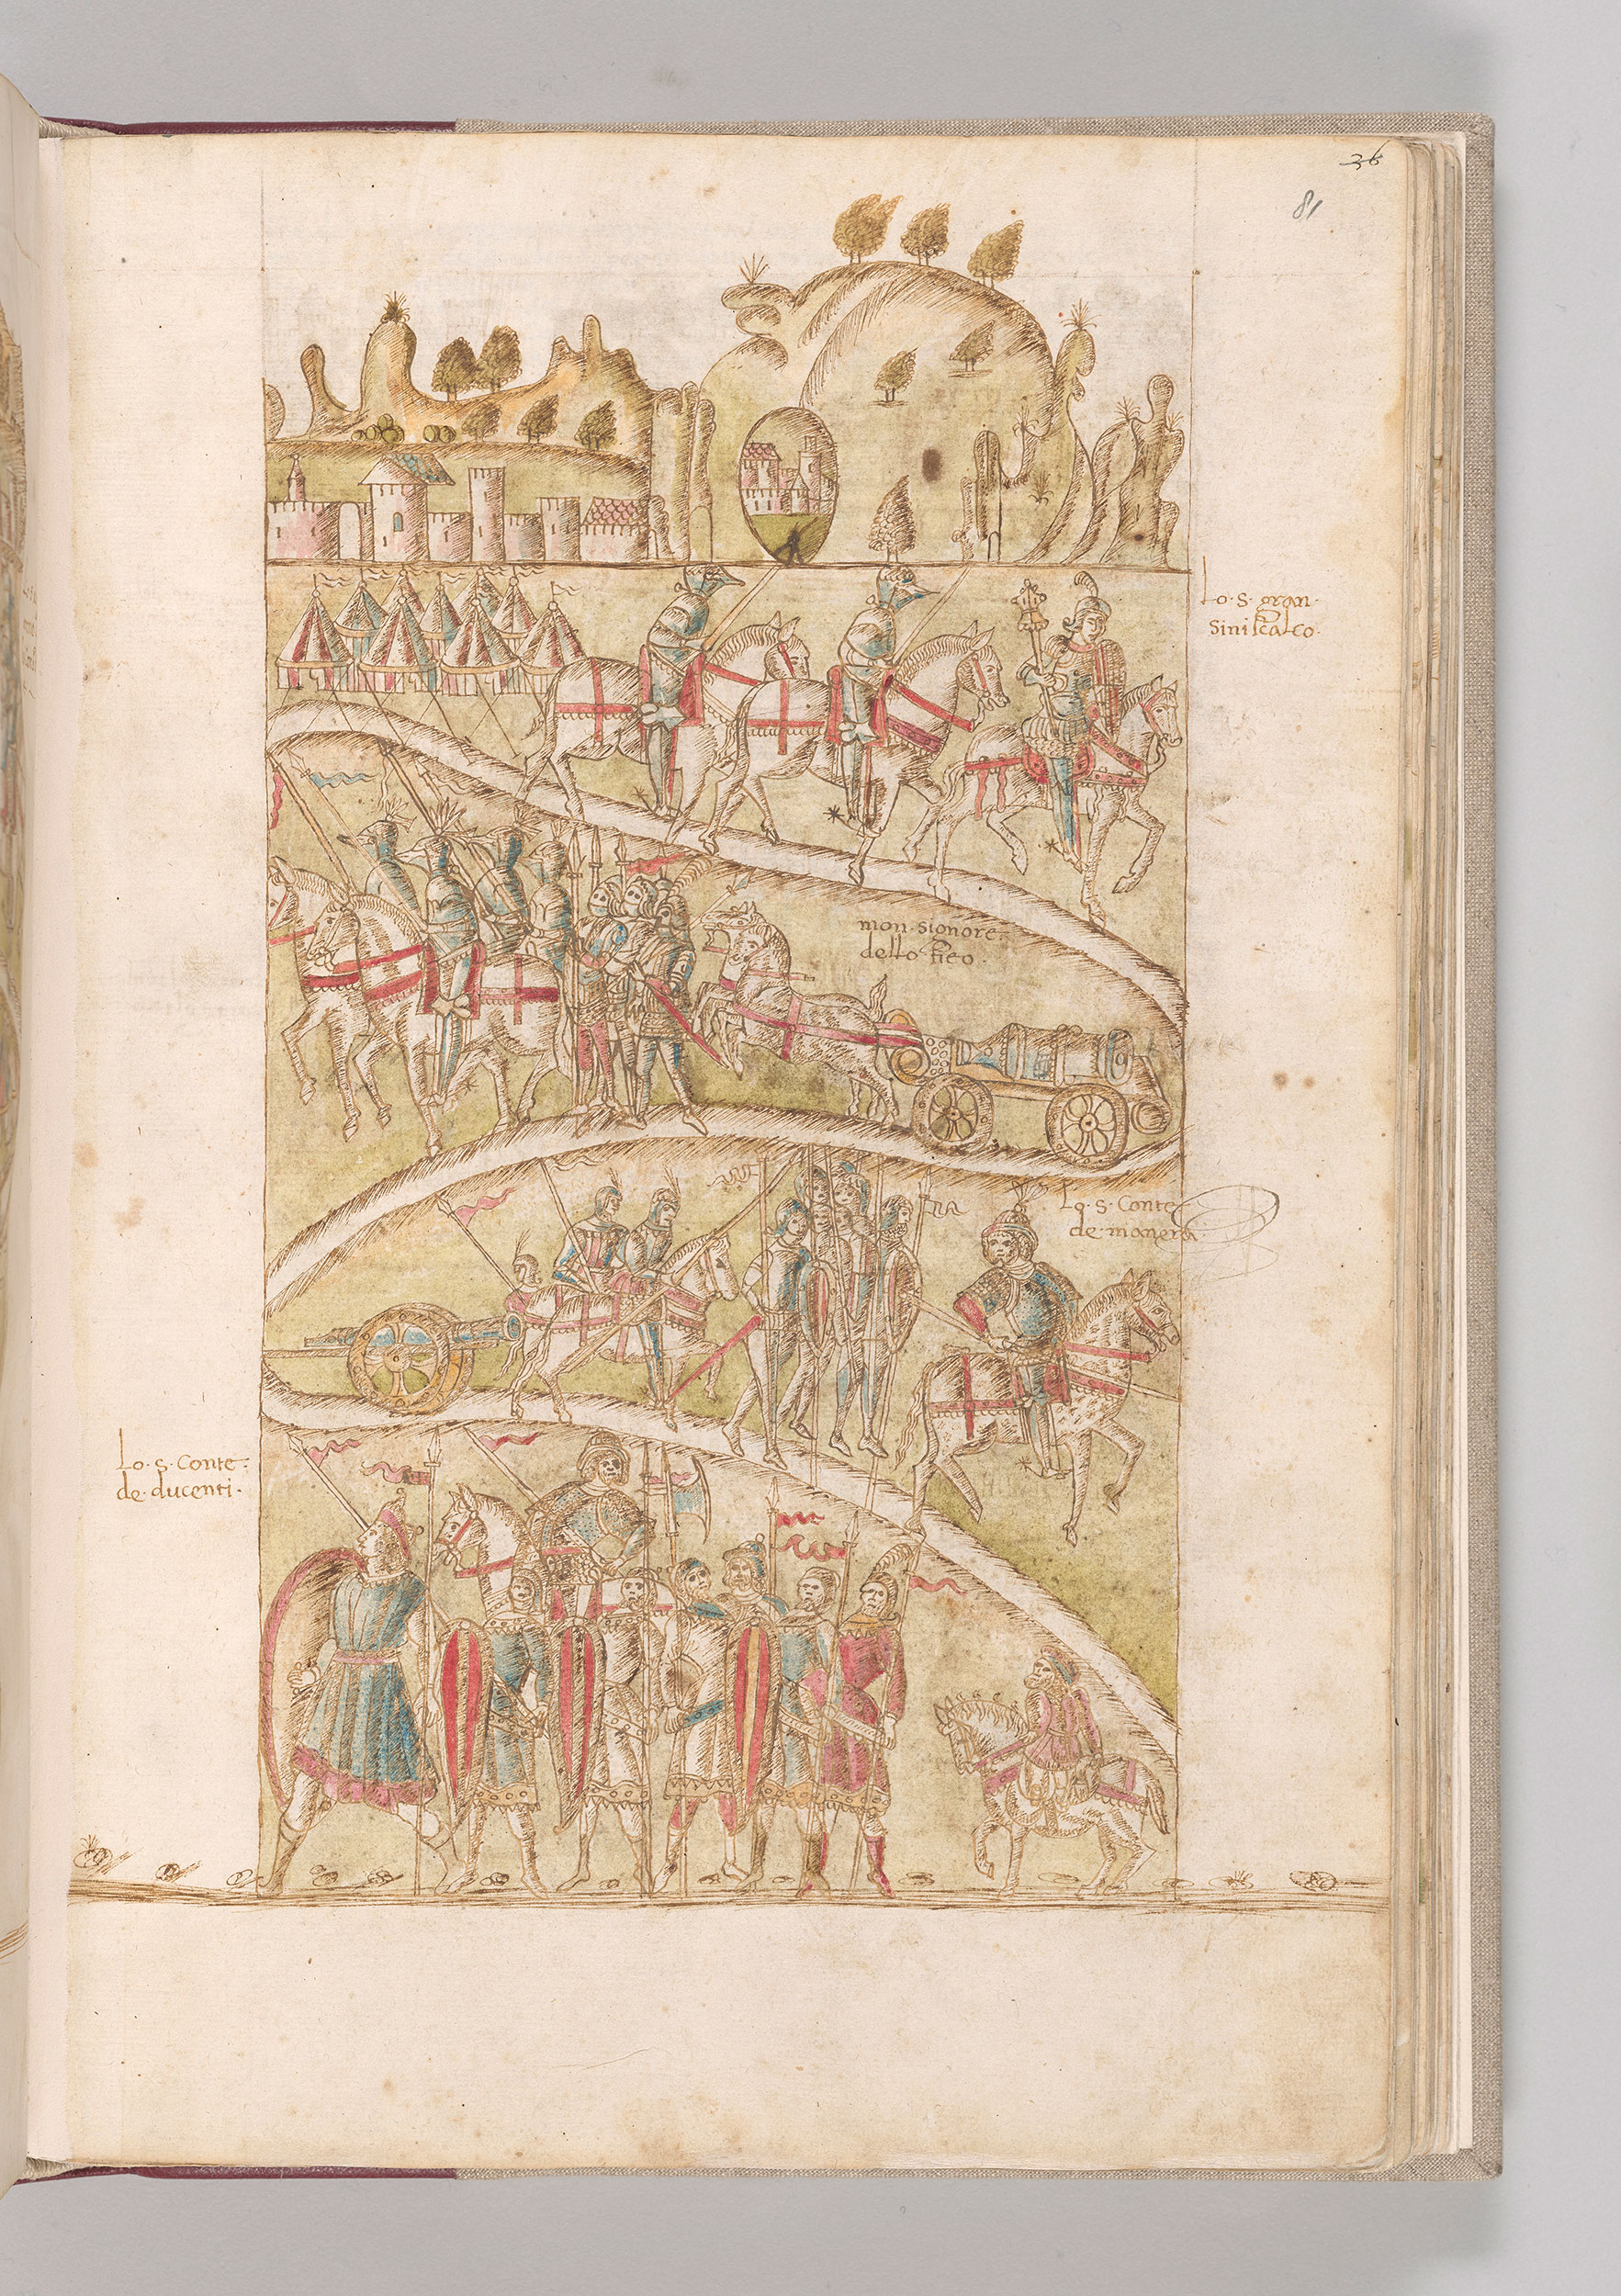 36
81
Lo·s·gran·
siniscalco·
mon·signore·
dello fieo·
Lo·s·Conte
de·monera·
Lo·s·Conte·
de·ducenti·